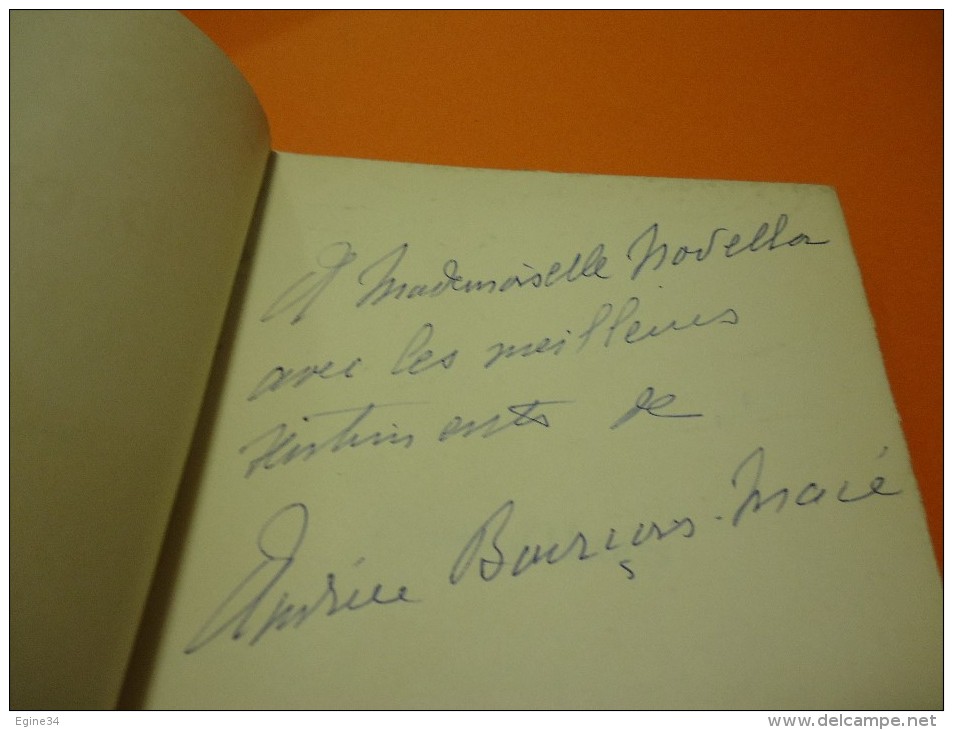 A Mademoiselle Novella
avec les meilleurs
sentiments de
Andrée Bourçois-Macé
Egine34
www.delcampe.net